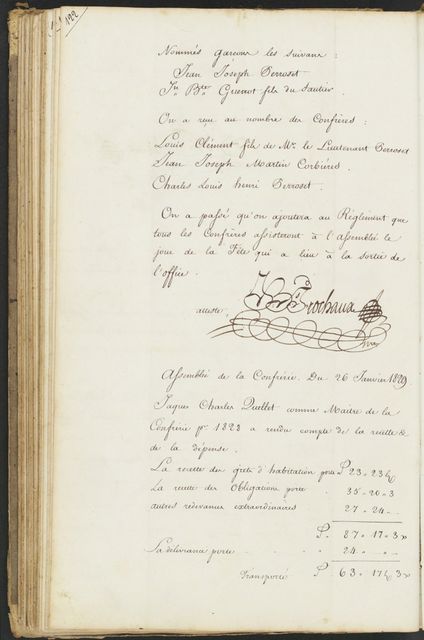 122
Nommés garçons les suivans :
Jean Joseph Perroset
Jn Bte fils du Sautier .
On a reçu au nombre des Confrères :
Louis Clément fils de Mr. le Lieutenant Perroset
Jean Joseph Martin Corbières .
Charles Louis henri Perroset .
On a passé qu'on ajoutera au Règlement que
tous les Confrères assisteront à l'assemblée le
jour de la Fête qui a lieu à la sortie de
l'office .
atteste,
Assemblée de la Confrérie. Du 26 Janvier 1829
Jaques Charles Quellet comme Maitre de la
Confrérie pr. 1828 a rendu compte de la recette &
de la dépense .
La recette des d'habitation porte 23 - 23
La recette des Obligations porte 35 - 26 - 3
autres redevances extraordinaires 27 - 24 -
87 - 17 - 3
La délivrance porte 24 -
Transporté 63 - 17 3